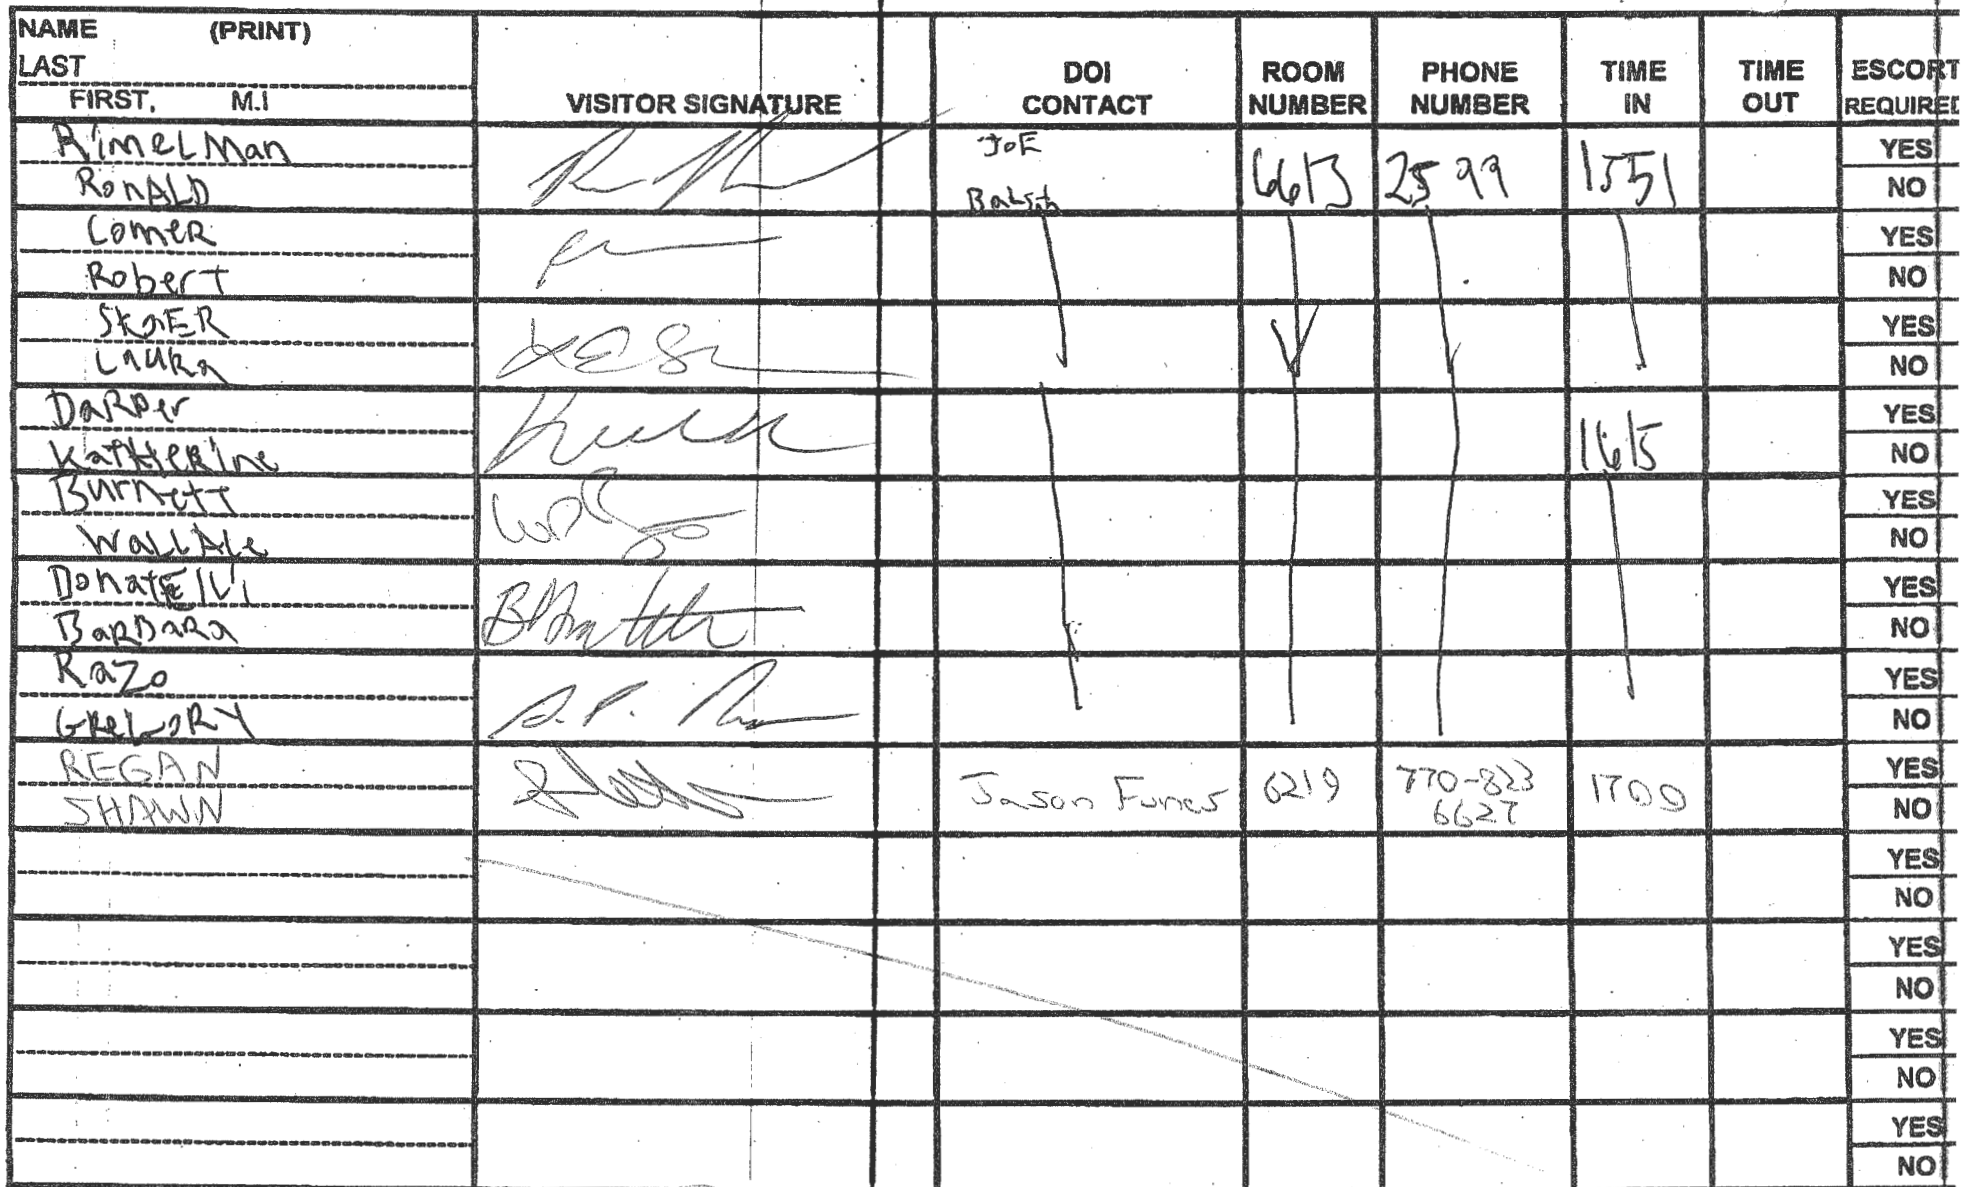 NAME (PRINT)
LAST
FIRST, M.I
VISITOR SIGNATURE
DOI CONTACT
ROOM NUMBER
PHONE NUMBER
TIME IN
TIME OUT
ESCORT REQUIRED
RimelMan
RonALD
JoE
6613 2599 1551
YES
NO
ComeR
Robert
YES
NO
LauRa
YES
NO
DaRper
KatHeRine
1615
YES
NO
Burnett
WaLLAce
YES
NO
DonatElli
BaRBaRa
YES
NO
RaZo
GReGoRY
YES
NO
REGAN
SHAWN
Jason Funes 6219 770-823 6627 1700
YES
NO
YES
NO
YES
NO
YES
NO
YES
NO